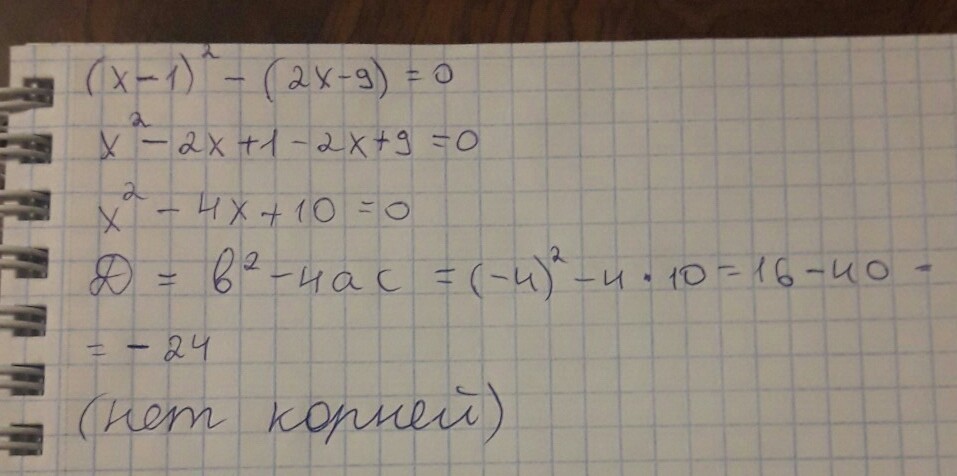 (x-1)² - (2x-9) = 0
x² - 2x + 1 - 2x + 9 = 0
x² - 4x + 10 = 0
D = b² - 4ac = (-4)² - 4 · 10 = 16 - 40 =
= - 24
(нет корней)